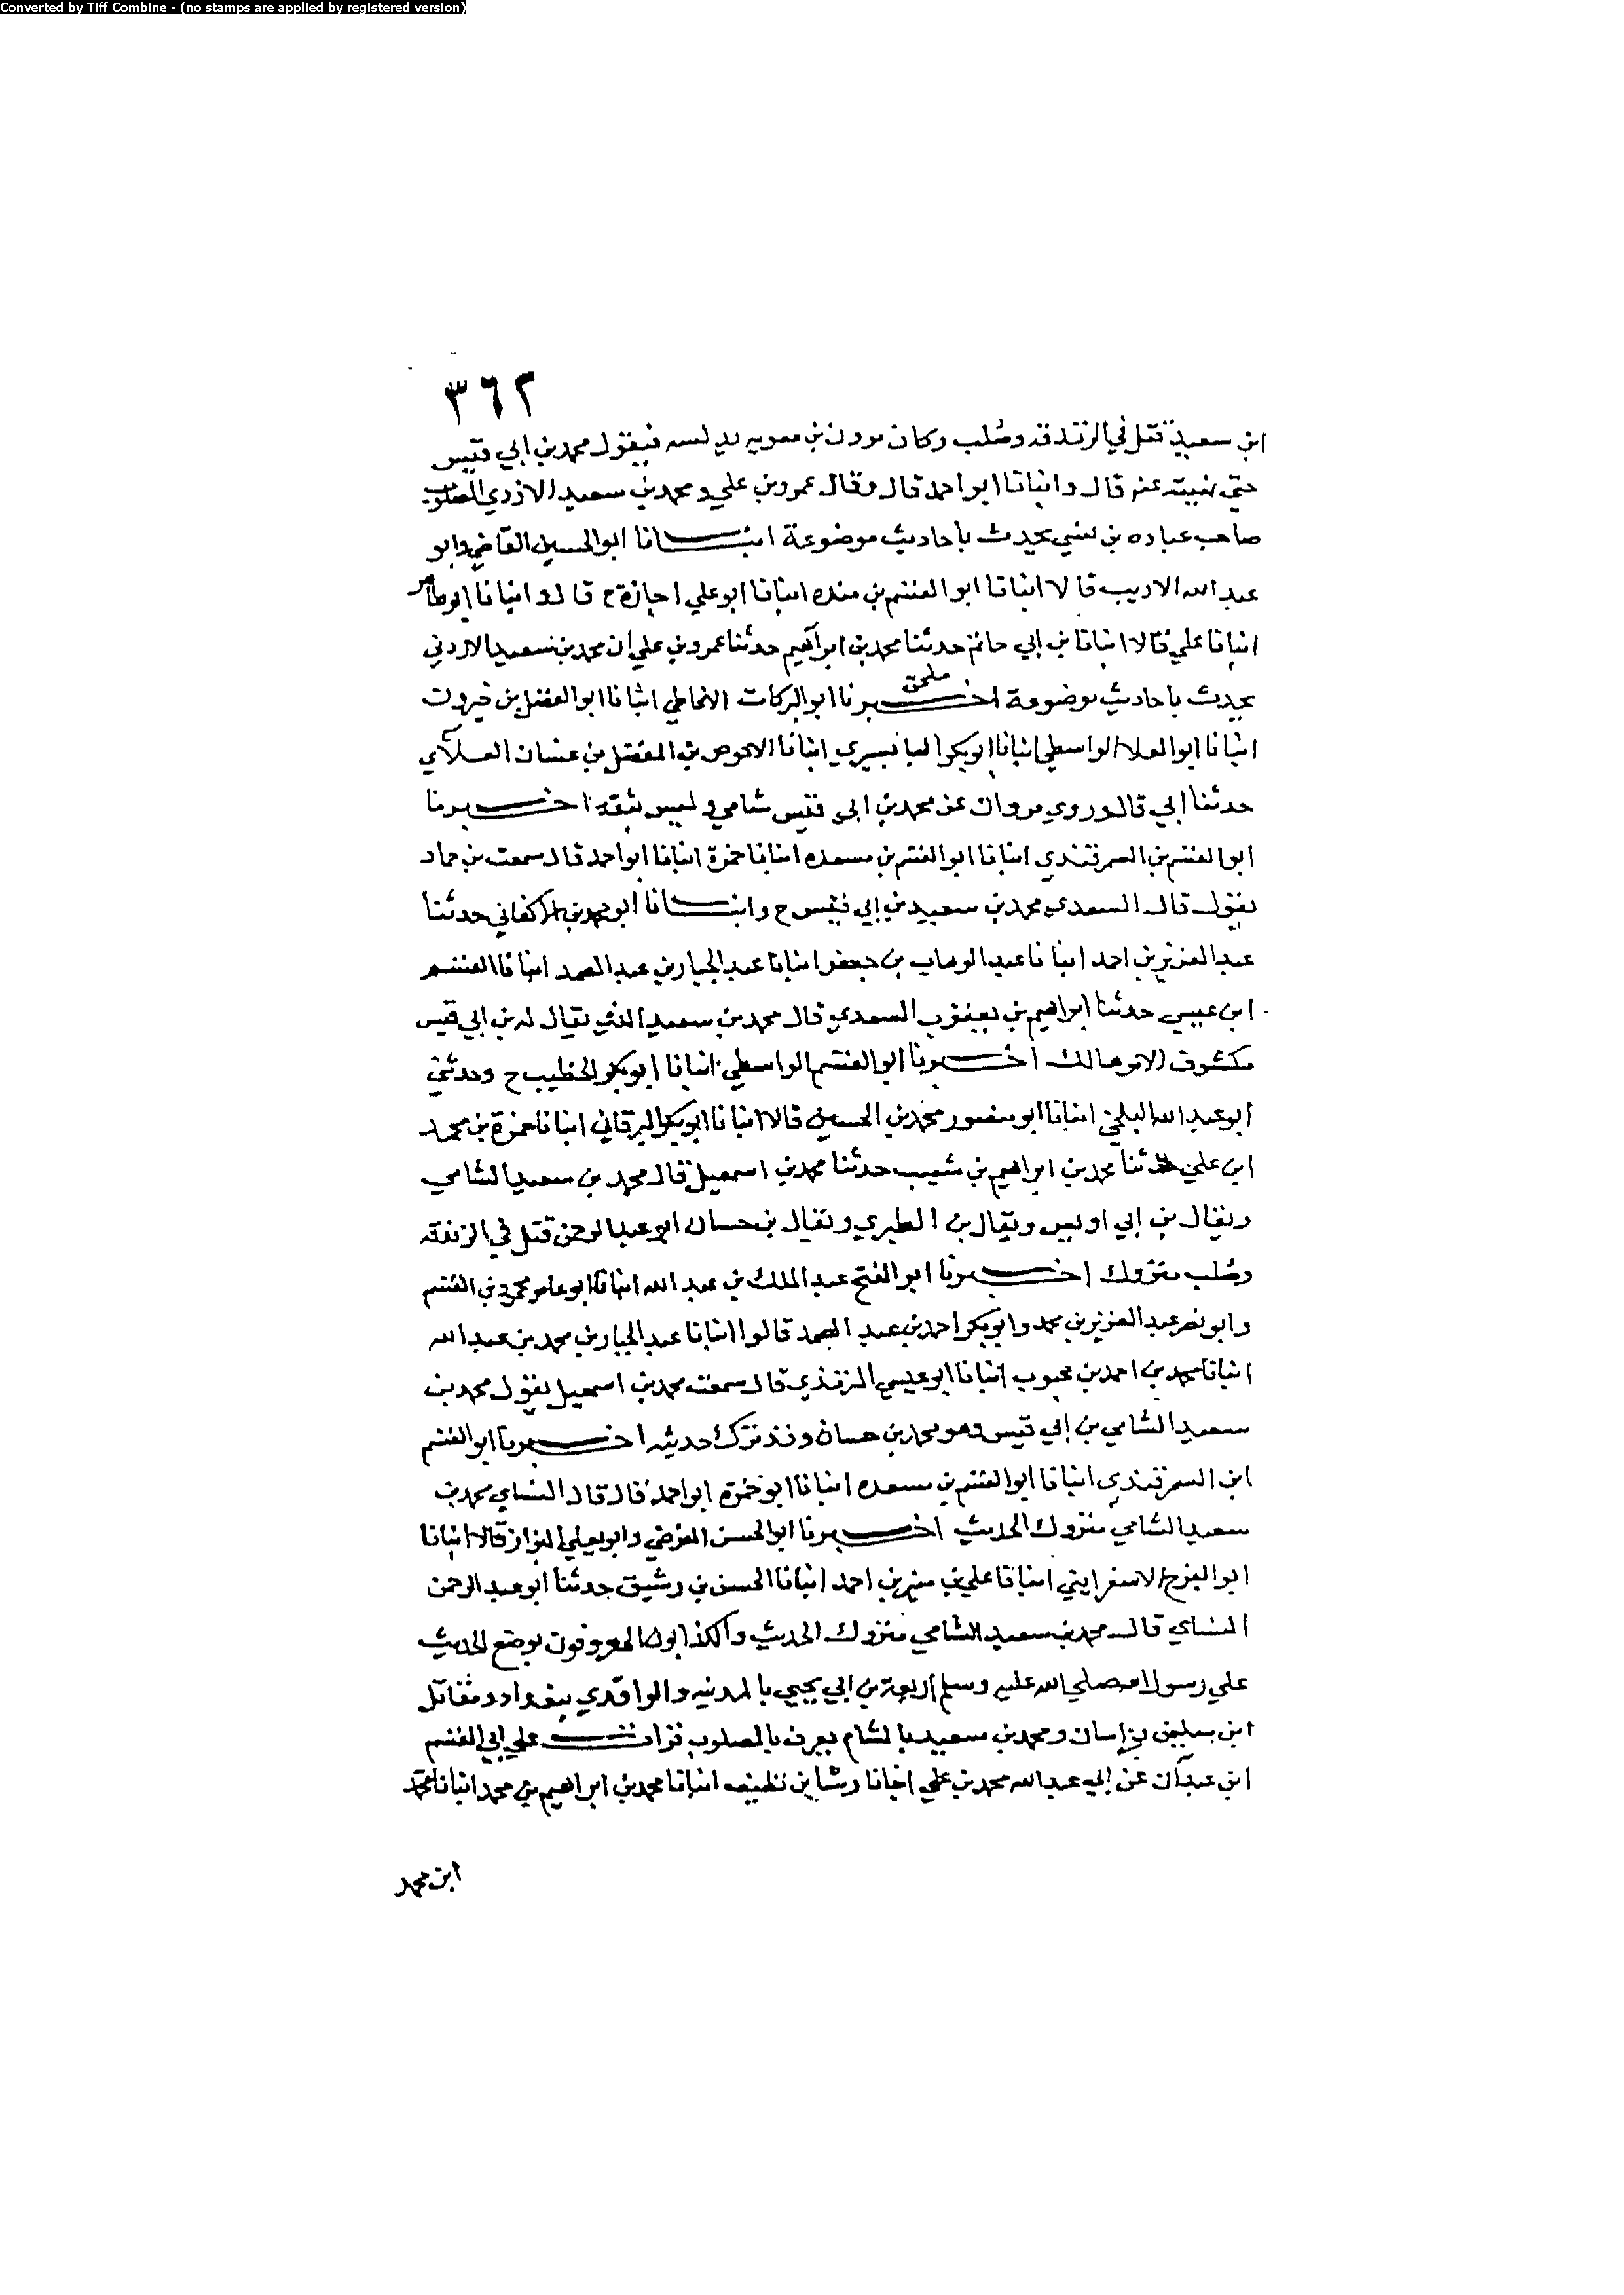 Converted by Tiff Combine - (no stamps are applied by registered version)
٣٦٢
ابن سعيد قتل في الزندقه وصُلب وكان مرون بن معويه يدلسه فيقول محمد بن ابي قيس
حتي نبيته عنه قال وانبانا ابو احمد قال وقال عمرو بن علي ومحمد بن سعيد الازدي المصلوب
صاحب عباده بن نسي يحدث باحاديث موضوعة انبـــانا ابو الحسين القاضي وابو
عبد الله الاديب قالا انبانا ابو القسم بن منده انبانا ابو علي اجازة ح قال وانبانا ابو طاهر
انبانا علي قالا انبانا بن ابي حاتم حدثنا محمد بن ابراهيم حدثنا عمرو بن علي ان محمد بن سعيد الاردني
يحدث باحاديث موضوعة اخـــبرنا ابو البركات الانماطي انبانا ابو الفضل بن خيرون
ملحق
انبانا ابو العلا الواسطي انبانا ابو بكر البابسيري انبانا الاحوص بن المفضل بن غسان الغلابي
حدثنا ابي قال وروي مروان عن محمد بن ابي قيس شامي وليس بثقه اخـــبرنا
ابو القسم بن السمرقندي انبانا ابو القسم بن مسعده انبانا حمزة انبانا ابو احمد قال سمعت بن حماد
يقول قال السعدي محمد بن سعيد بن ابي قيس ح وانبـــانا ابو محمد بن الاكفاني حدثنا
عبد العزيز بن احمد انبانا عبد الوهاب بن جعفر انبانا عبد الجبار بن عبد الصمد انبانا القسم
ابن عيسي حدثنا ابراهيم بن يعقوب السعدي قال محمد بن سعيد الذي يقال له بن ابي قيس
مكشوف الامر هالك اخـــبرنا ابو القسم الواسطي انبانا ابو بكر الخطيب ح وحدثني
ابو عبد الله البلخي انبانا ابو منصور محمد بن الحسين قالا انبانا ابو بكر البرقاني انبانا حمزة بن محمد
ابن علي حدثنا محمد بن ابراهيم بن شعيب حدثنا محمد بن اسمعيل قال محمد بن سعيد الشامي
ويقال بن ابي اويس ويقال بن الطبري ويقال بن حسان ابو عبد الرحمن قتل في الزندقه
وصُلب متروك اخـــبرنا ابو الفتح عبد الملك بن عبد الله انبانا ابو عامر محمود بن القسم
وابو نصر عبد العزيز بن محمد وابو بكر احمد بن عبد الصمد قالوا انبانا عبد الجبار بن محمد بن عبد الله
انبانا محمد بن احمد بن محبوب انبانا ابو عيسي الترمذي قال سمعت محمد بن اسمعيل يقول محمد بن
سعيد الشامي بن ابي قيس وهو محمد بن حسان وقد ترك حديثه اخـــبرنا ابو القسم
ابن السمرقندي انبانا ابو القسم بن مسعده انبانا ابو حمزة ابو احمد قال قال النساي محمد بن
سعيد الشامي متروك الحديث اخـــبرنا ابو الحسن الفرضي وابو يعلي البزاز قالا انبانا
ابو الفرج الاسفرايني انبانا علي بن منير بن احمد انبانا الحسن بن رشيق حدثنا ابو عبد الرحمن
النساي قال محمد بن سعيد الشامي متروك الحديث والكذابون المعروفون بوضع الحديث
علي رسول الله صلي الله عليه وسلم اربعة بن ابي يحيي بالمدينه والواقدي ببغداد ومقاتل
ابن سليمن بخراسان ومحمد بن سعيد بالشام يعرف بالمصلوب قراتـــ علي ابي القسم
ابن عبدان عن ابي عبد الله محمد بن علي انبانا رشا بن نظيف انبانا محمد بن ابراهيم بن محمد انبانا محمد
ابن محمد